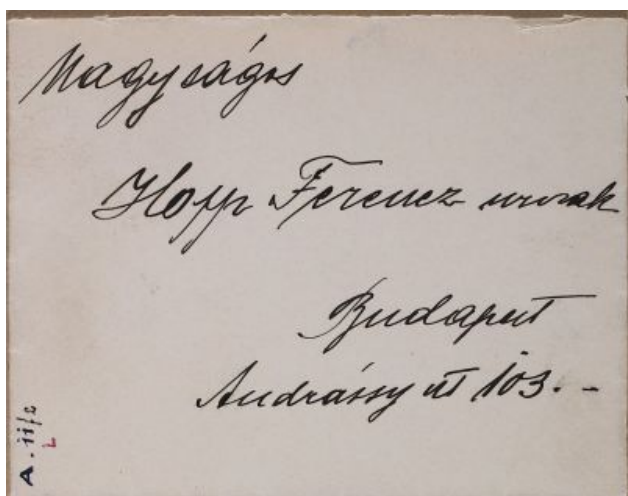 Magyságos
Hopp Ferencz urnak
Budapest
Andrássy út 103. -
A. ii/2